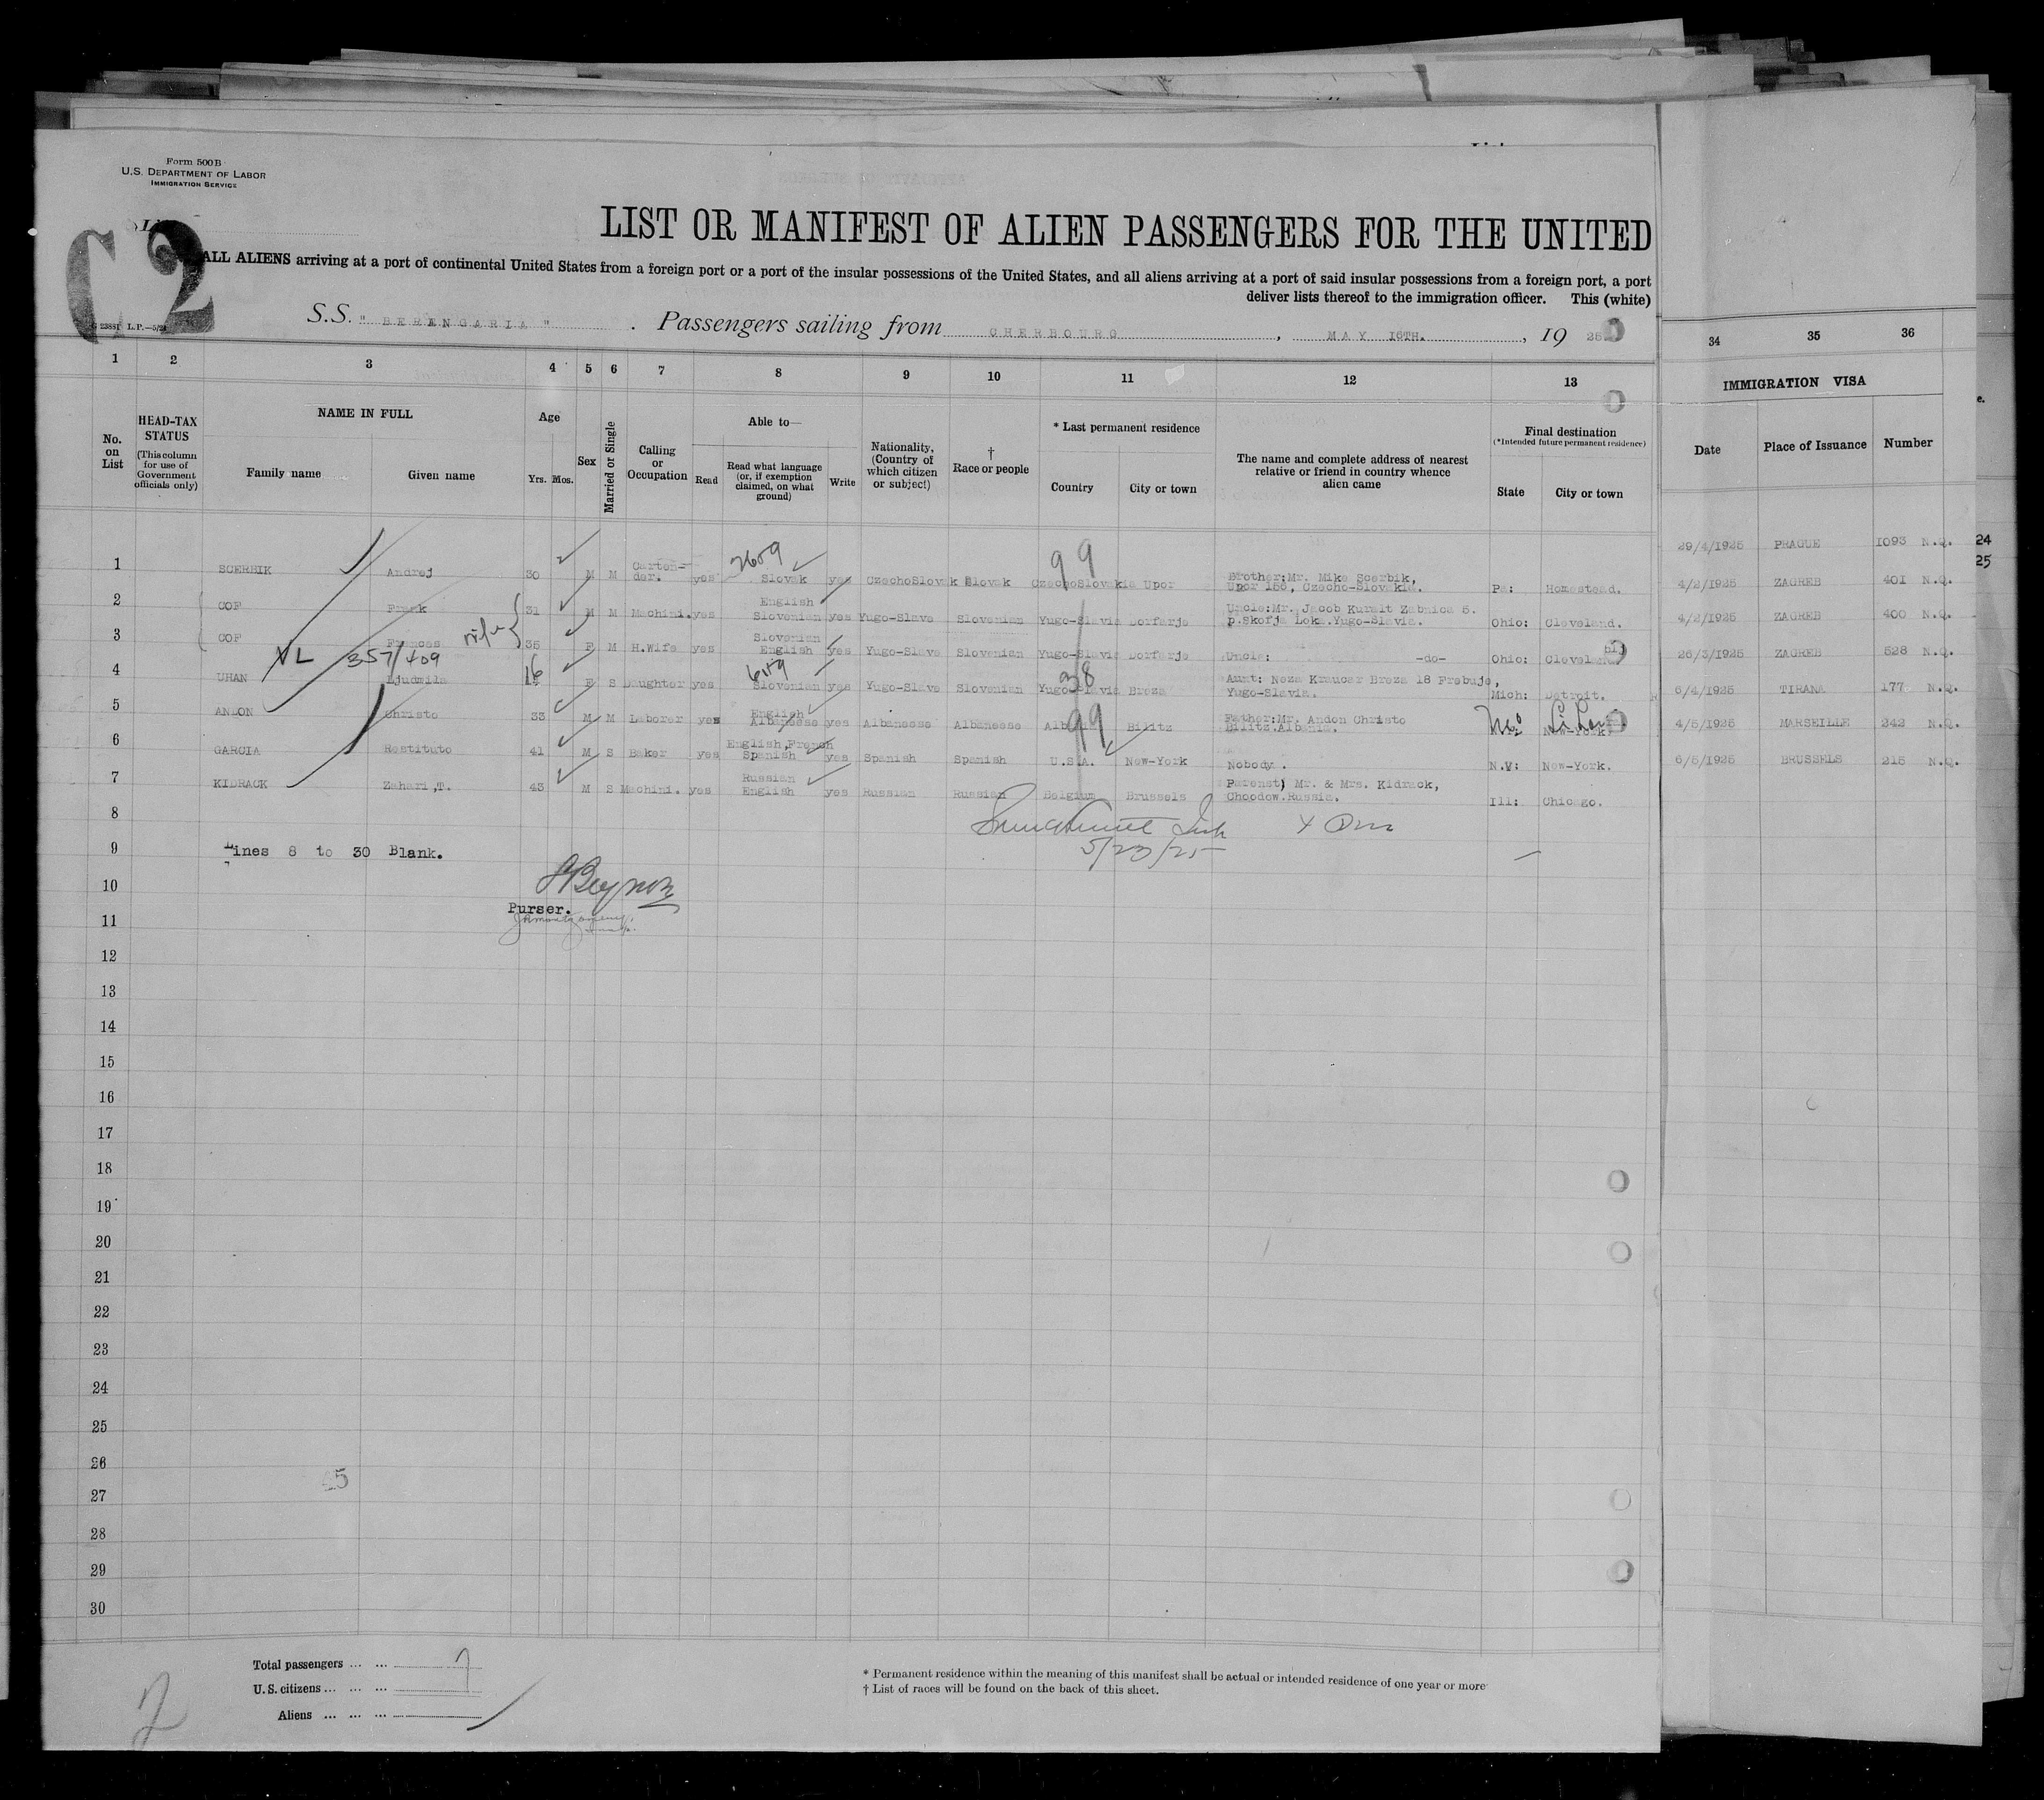 Form 500B
U.S. DEPARTMENT OF LABOR
IMMIGRATION SERVICE
C 2
LIST OR MANIFEST OF ALIEN PASSENGERS FOR THE UNITED
ALL ALIENS arriving at a port of continental United States from a foreign port or a port of the insular possessions of the United States, and all aliens arriving at a port of said insular possessions from a foreign port, a port
deliver lists thereof to the immigration officer. This (white)
S.S. " BERENGARIA " . Passengers sailing from CHERBOURG , MAY 16TH. , 19 25
1 2 3 4 5 6 7 8 9 10 11 12 13 34 35 36
No. on List
HEAD-TAX STATUS (This column for use of Government officials only)
NAME IN FULL
Family name Given name
Age
Yrs. Mos.
Sex
Married or Single
Calling or Occupation
Able to—
Read
Read what language (or, if exemption claimed, on what ground)
Write
Nationality, (Country of which citizen or subject)
† Race or people
* Last permanent residence
Country City or town
The name and complete address of nearest relative or friend in country whence alien came
Final destination
(*Intended future permanent residence)
State City or town
IMMIGRATION VISA
Date Place of Issuance Number
24
25
2609 99
1 SCERBIK Andrej 30 M M Carton=der. yes Slovak yes CzechoSlovak Slovak CzechoSlovakia Upor Brother:Mr. Mike Scerbik, Upor 156, Czecho-Slovakia. Pa: Homestead. 29/4/1925 PRAGUE 1093 N.Q.
2 COF Frank 31 M M Machini. yes English Slovenian yes Yugo-Slave Slovenian Yugo-Slavia Dorfarje Uncle:Mr. Jacob Kuralt Zabnica 5. p.Skofja Loka.Yugo-Slavia. Ohio: Cleveland. 4/2/1925 ZAGREB 401 N.Q.
wife
3 COF Frances 35 F M H.Wife yes Slovenian English yes Yugo-Slave Slovenian Yugo-Slavia Dorfarje Uncle: -do- Ohio: Cleveland 4/2/1925 ZAGREB 400 N.Q.
VL 357/409 16 6159 38
4 UHAN Ljudmila F S Daughter yes Slovenian yes Yugo-Slave Slovenian Yugo-Slavia Breza Aunt: Neza Kraucar Breza 18 Prebuje, Yugo-Slavia. Mich: Detroit. 26/3/1925 ZAGREB 528 N.Q.
5 ANDON Christo 33 M M Laborer yes English Albanese yes Albanese Albanese Albania Bilitz Father:Mr. Andon Christo Bilitz.Albania. New-York. 6/4/1925 TIRANA 177 N.Q.
99
6 GARCIA Restituto 41 M S Baker yes English,French Spanish yes Spanish Spanish U.S.A. New-York Nobody. N.Y: New-York. 4/5/1925 MARSEILLE 242 N.Q.
7 KIDRACK Zahari,T. 43 M S Machini. yes Russian English yes Russian Russian Belgium Brussels Parenst) Mr. & Mrs. Kidrack, Choodow.Russia. Ill: Chicago. 6/5/1925 BRUSSELS 215 N.Q.
8
5/23/25
9 Lines 8 to 30 Blank.
10
Purser.
11
12
13
14
15
16
17
18
19
20
21
22
23
24
25
26
27
28
29
30
Total passengers ... ... 7
U.S. citizens ... ... ...
Aliens ... ... ...
2
* Permanent residence within the meaning of this manifest shall be actual or intended residence of one year or more
† List of races will be found on the back of this sheet.